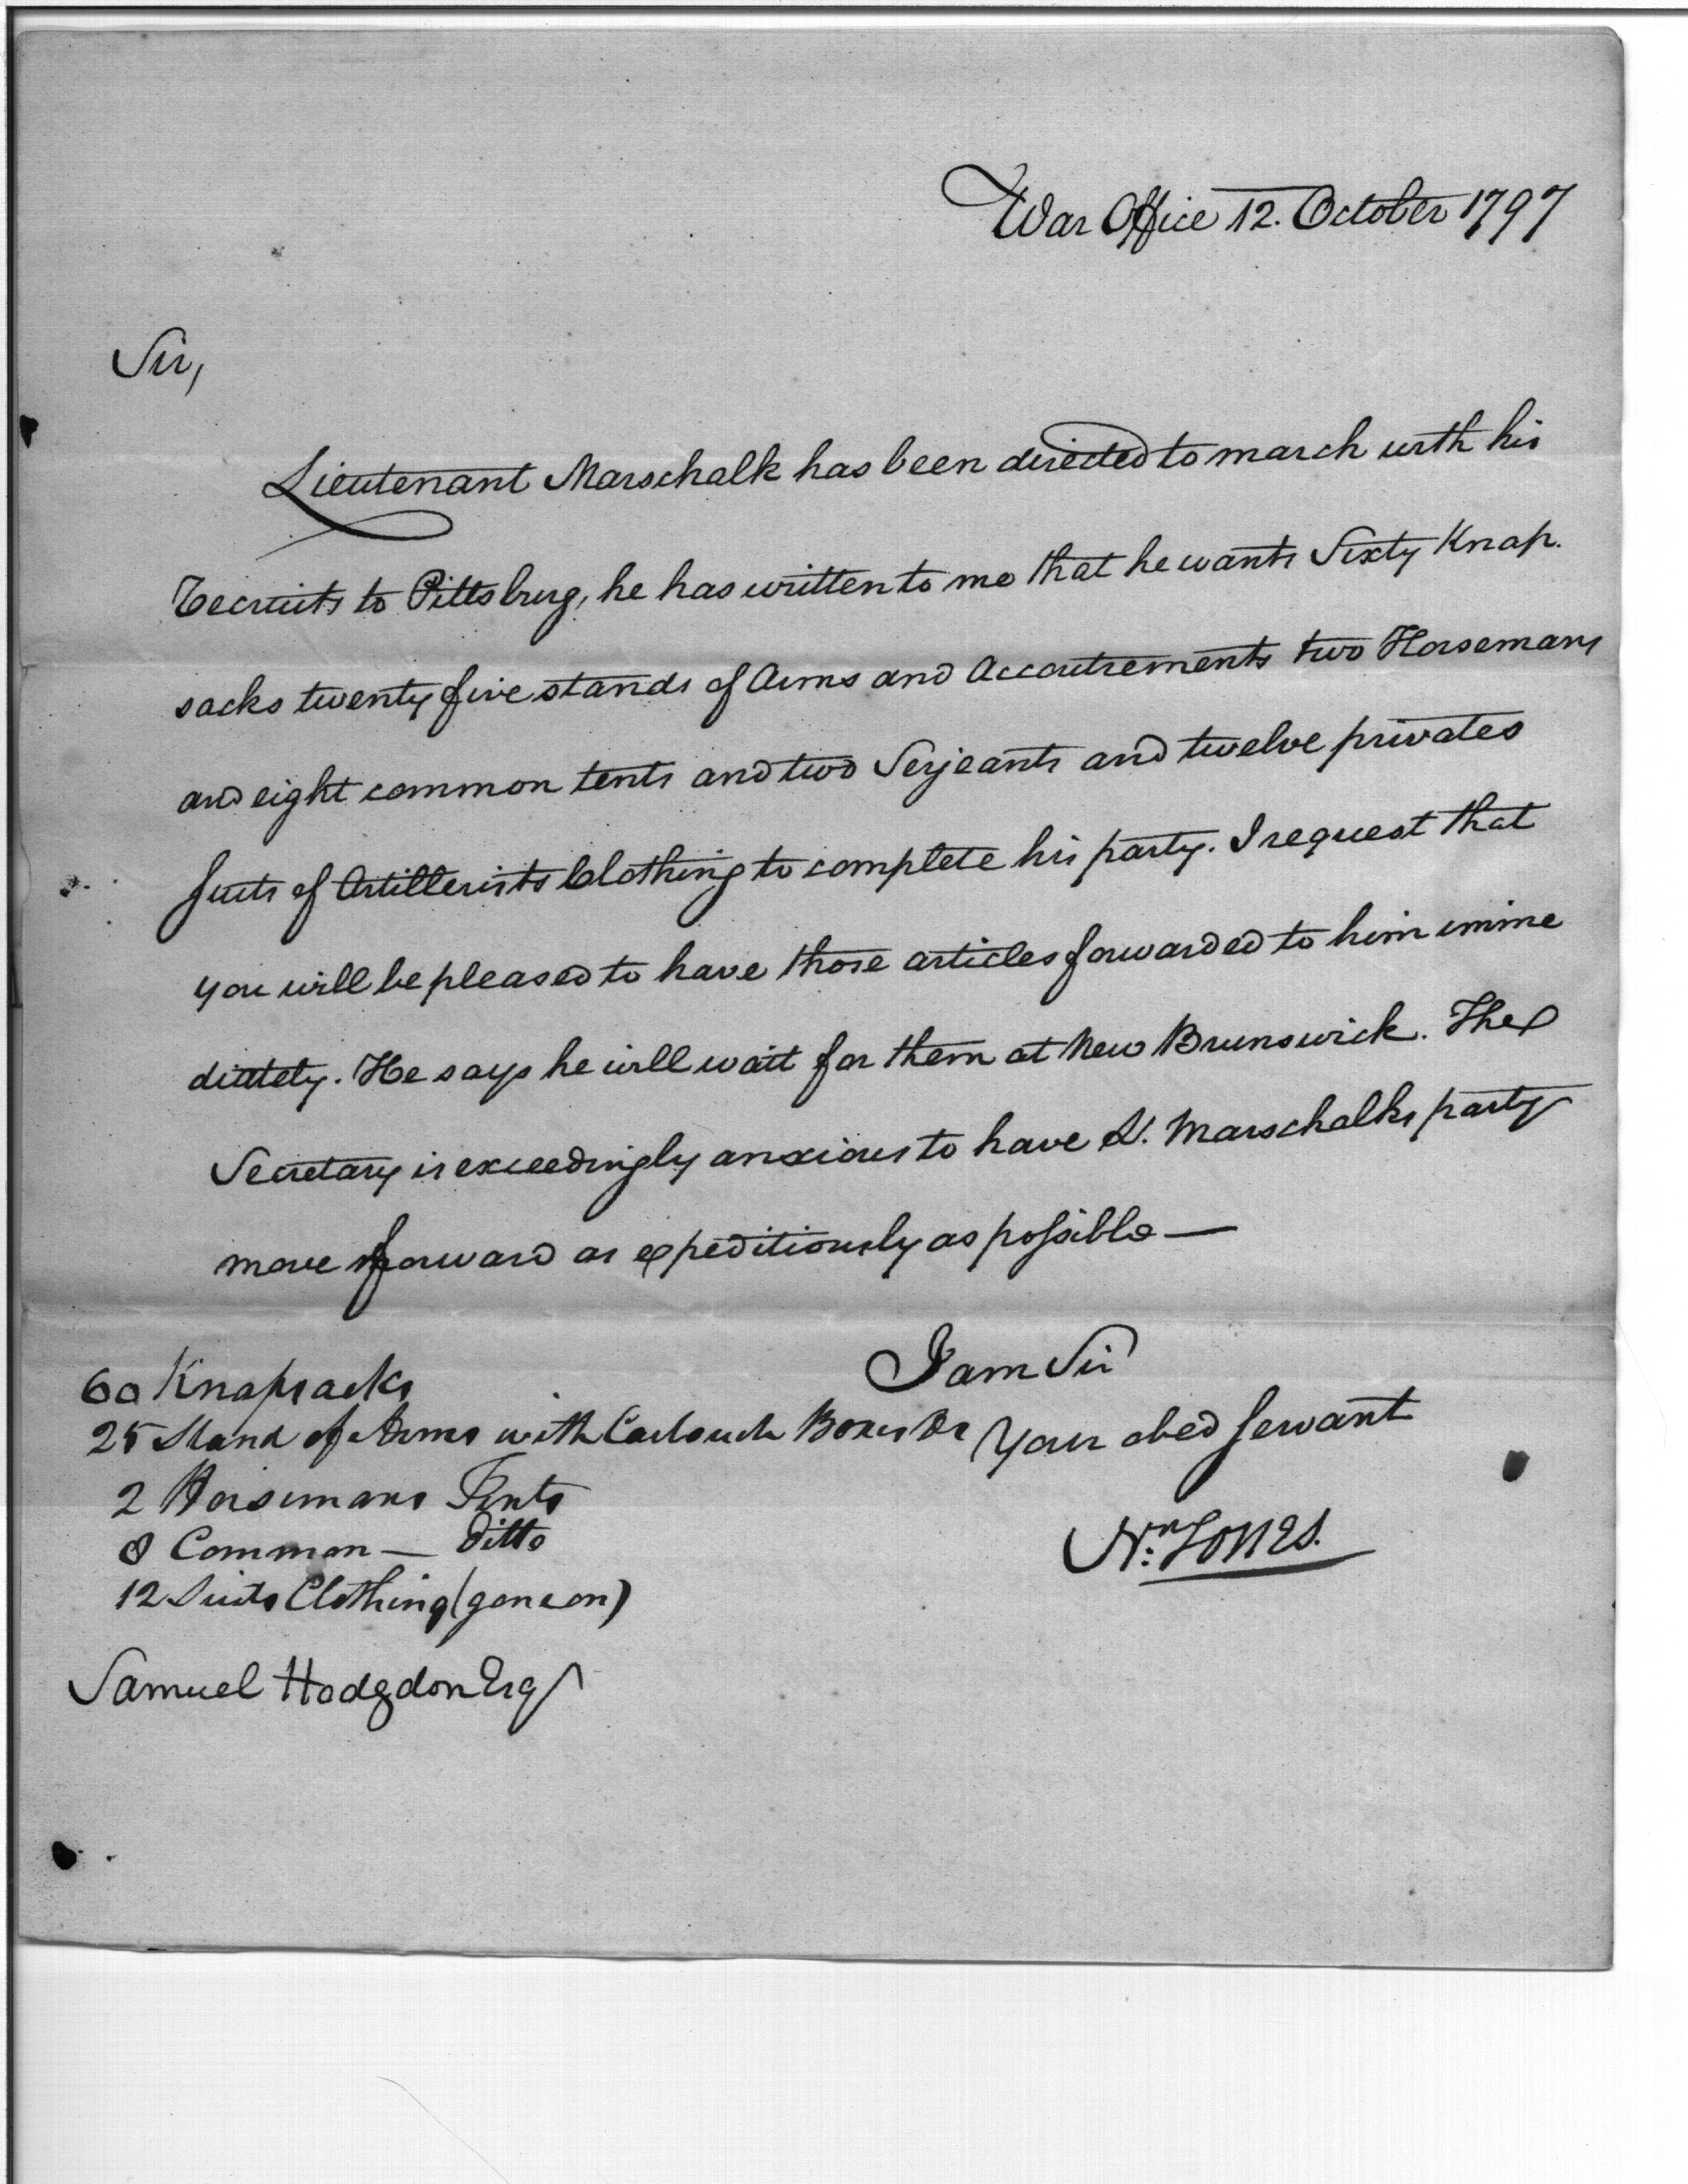 War Office 12. October 1797
Sir,
Lieutenant Marschalk has been directed to march with his
recruits to Pittsburg, he has written to me that he wants Sixty Knap.
sacks twenty five stands of Arms and Accoutrements two Horsemans
and eight common tents and two Serjeants and twelve privates
suits of Artillerists Clothing to complete his party. I request that
you will be pleased to have those articles forwarded to him imme
diately. He says he will wait for them at New Brunswick. The
Secretary is exceedingly anxious to have Lt. Marschalks party
move forward as expeditiously as possible —
I am Sir
Your obed servant
Nn: Jones.
60 Knapsacks
25 Stand of Arms with Cartouch Boxes &c
2 Horsemans Tents
8 Common — Ditto
12 Suits Clothing (gone on)
Samuel Hodgdon Esqr